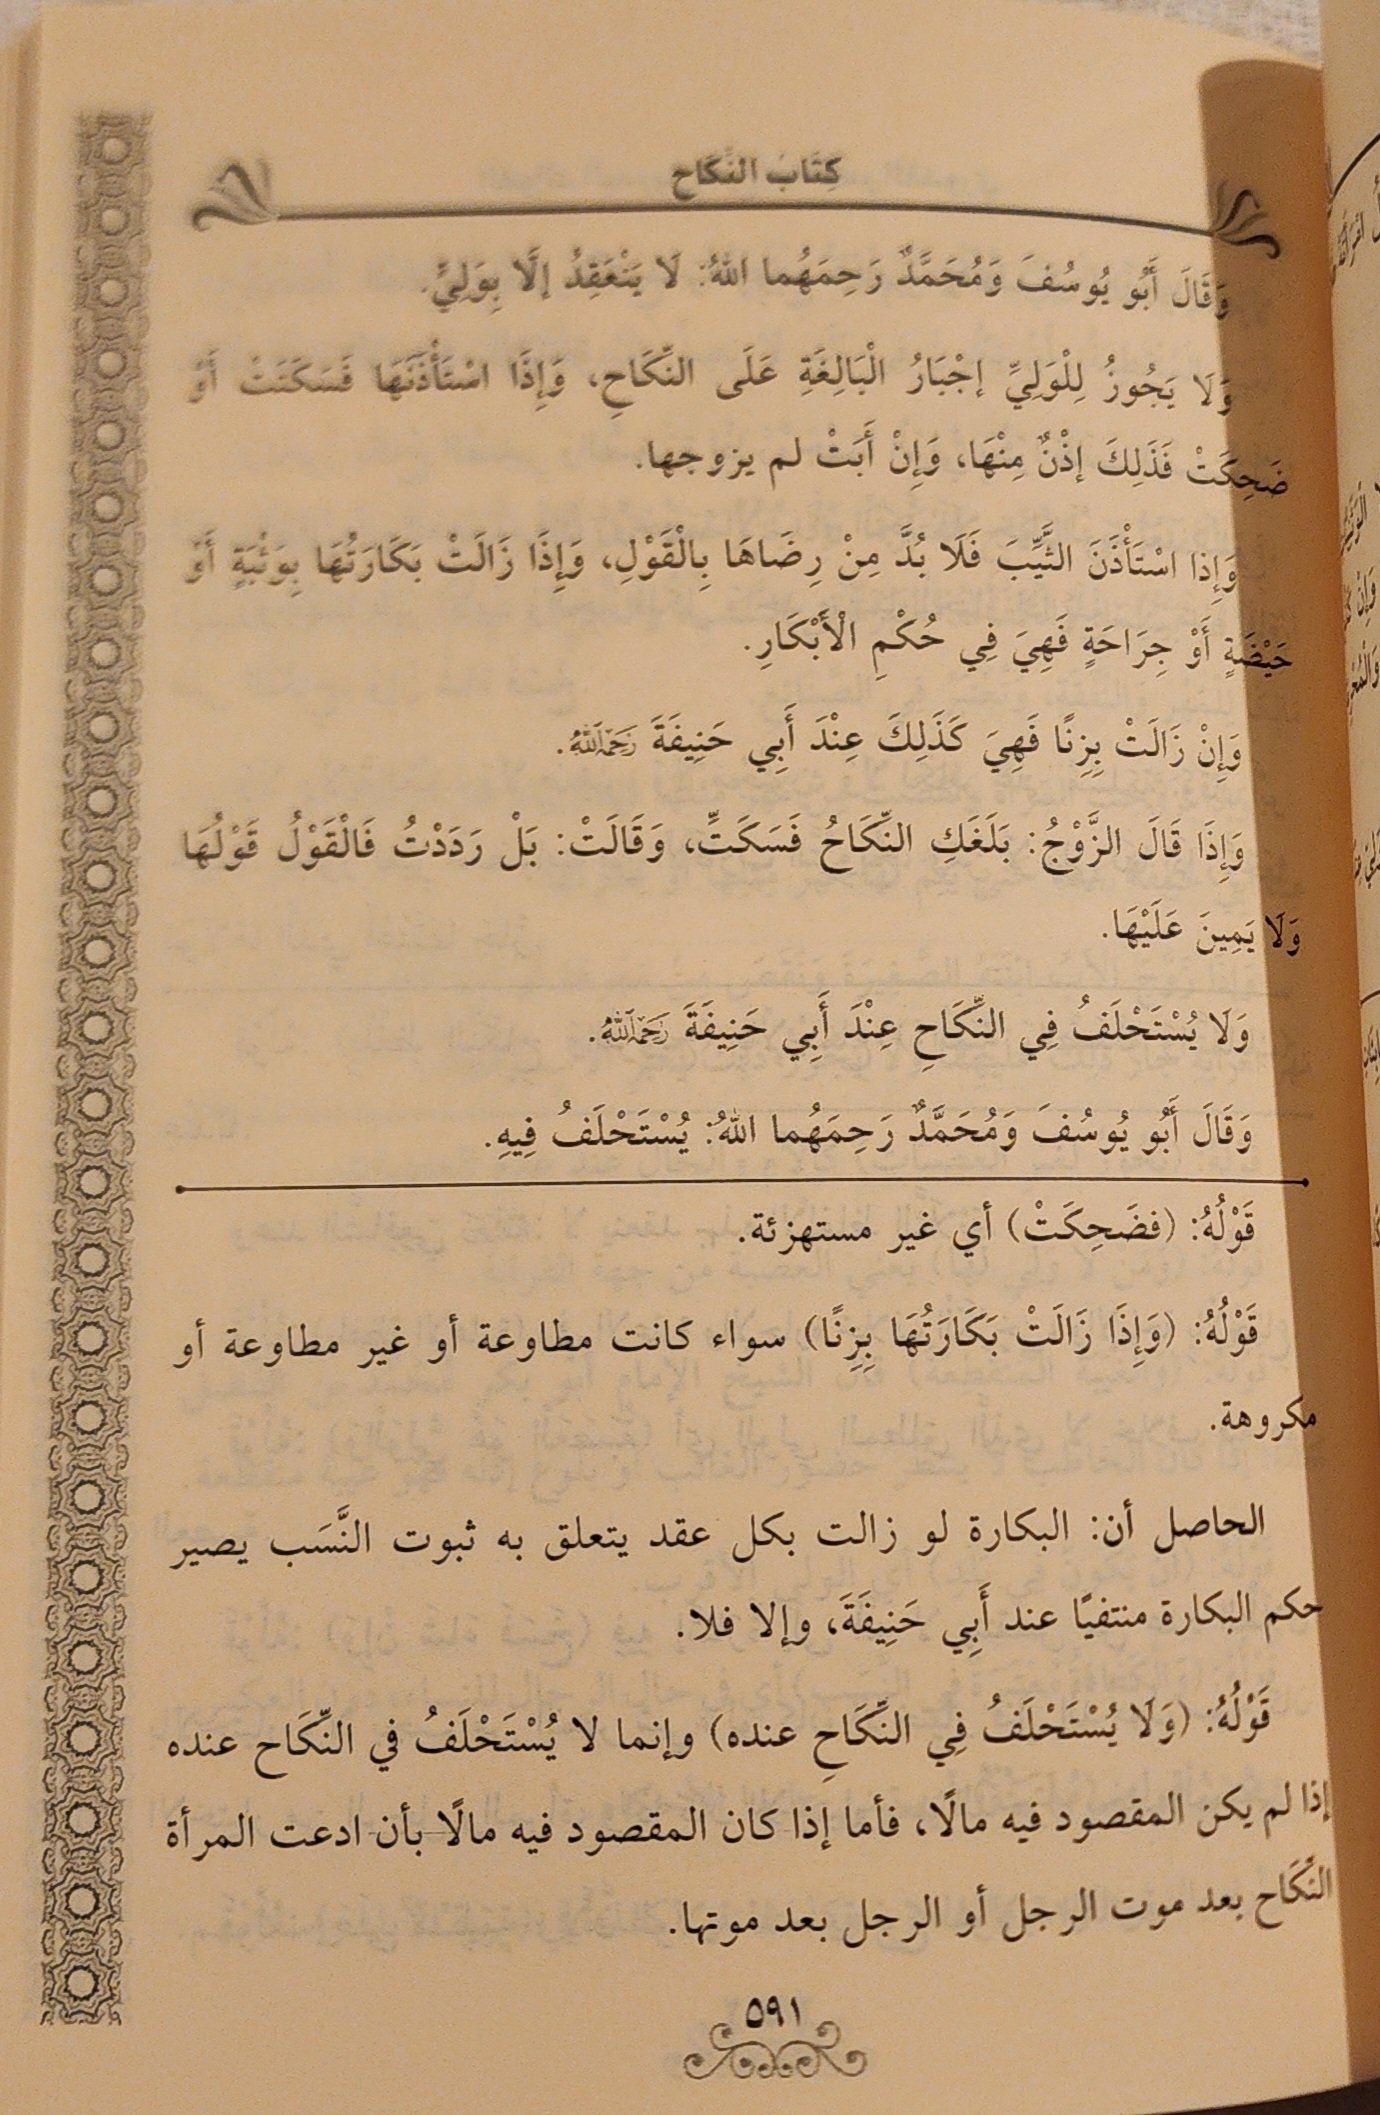 كِتَابُ النِّكَاحِ
وَقَالَ أَبُو يُوسُفَ وَمُحَمَّدٌ رَحِمَهُما اللهُ: لَا يَنْعَقِدُ إلَّا بِوَلِيٍّ.
وَلَا يَجُوزُ لِلْوَلِيِّ إجْبَارُ الْبَالِغَةِ عَلَى النِّكَاحِ، وَإِذَا اسْتَأْذَنَهَا فَسَكَتَتْ أَوْ
ضَحِكَتْ فَذَلِكَ إذْنٌ مِنْهَا، وَإِنْ أَبَتْ لم يزوجها.
وَإِذا اسْتَأْذَنَ الثَّيِّبَ فَلَا بُدَّ مِنْ رِضَاهَا بِالْقَوْلِ، وَإِذَا زَالَتْ بَكَارَتُهَا بِوَثْبَةٍ أَوْ
حَيْضَةٍ أَوْ جِرَاحَةٍ فَهِيَ فِي حُكْمِ الْأَبْكَارِ.
وَإِنْ زَالَتْ بِزِنًا فَهِيَ كَذَلِكَ عِنْدَ أَبِي حَنِيفَةَ رَحِمَهُ اللهُ.
وَإِذَا قَالَ الزَّوْجُ: بَلَغَكِ النِّكَاحُ فَسَكَتِّ، وَقَالَتْ: بَلْ رَدَدْتُ فَالْقَوْلُ قَوْلُهَا
وَلَا يَمِينَ عَلَيْهَا.
وَلَا يُسْتَحْلَفُ فِي النِّكَاحِ عِنْدَ أَبِي حَنِيفَةَ رَحِمَهُ اللهُ.
وَقَالَ أَبُو يُوسُفَ وَمُحَمَّدٌ رَحِمَهُما اللهُ: يُسْتَحْلَفُ فِيهِ.
قَوْلُهُ: (فضَحِكَتْ) أي غير مستهزئة.
قَوْلُهُ: (وَإِذَا زَالَتْ بَكَارَتُهَا بِزِنًا) سواء كانت مطاوعة أو غير مطاوعة أو
مكروهة.
الحاصل أن: البكارة لو زالت بكل عقد يتعلق به ثبوت النَّسَب يصير
حكم البكارة منتفيًا عند أَبِي حَنِيفَةَ، وإلا فلا.
قَوْلُهُ: (وَلَا يُسْتَحْلَفُ فِي النِّكَاحِ عنده) وإنما لا يُسْتَحْلَفُ في النِّكَاح عنده
إذا لم يكن المقصود فيه مالًا، فأما إذا كان المقصود فيه مالًا بأن ادعت المرأة
النِّكَاح بعد موت الرجل أو الرجل بعد موتها.
٥٩١